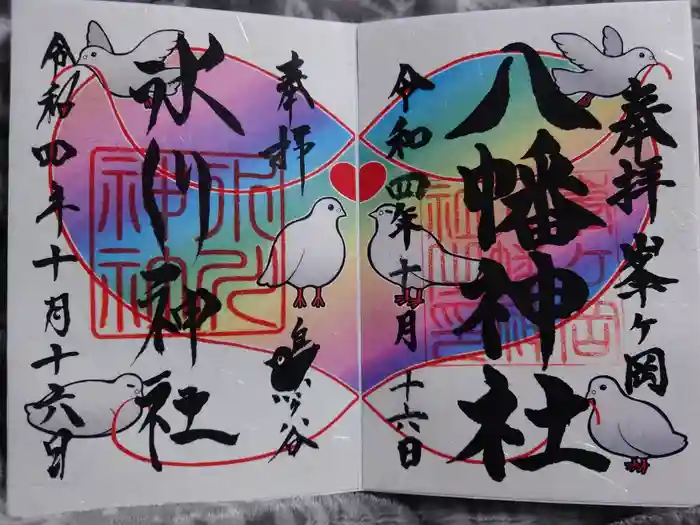 奉拝 峯ヶ岡
八幡神社
令和四年十月十六日
奉拝 鳩ヶ谷
氷川神社
令和四年十月十六日